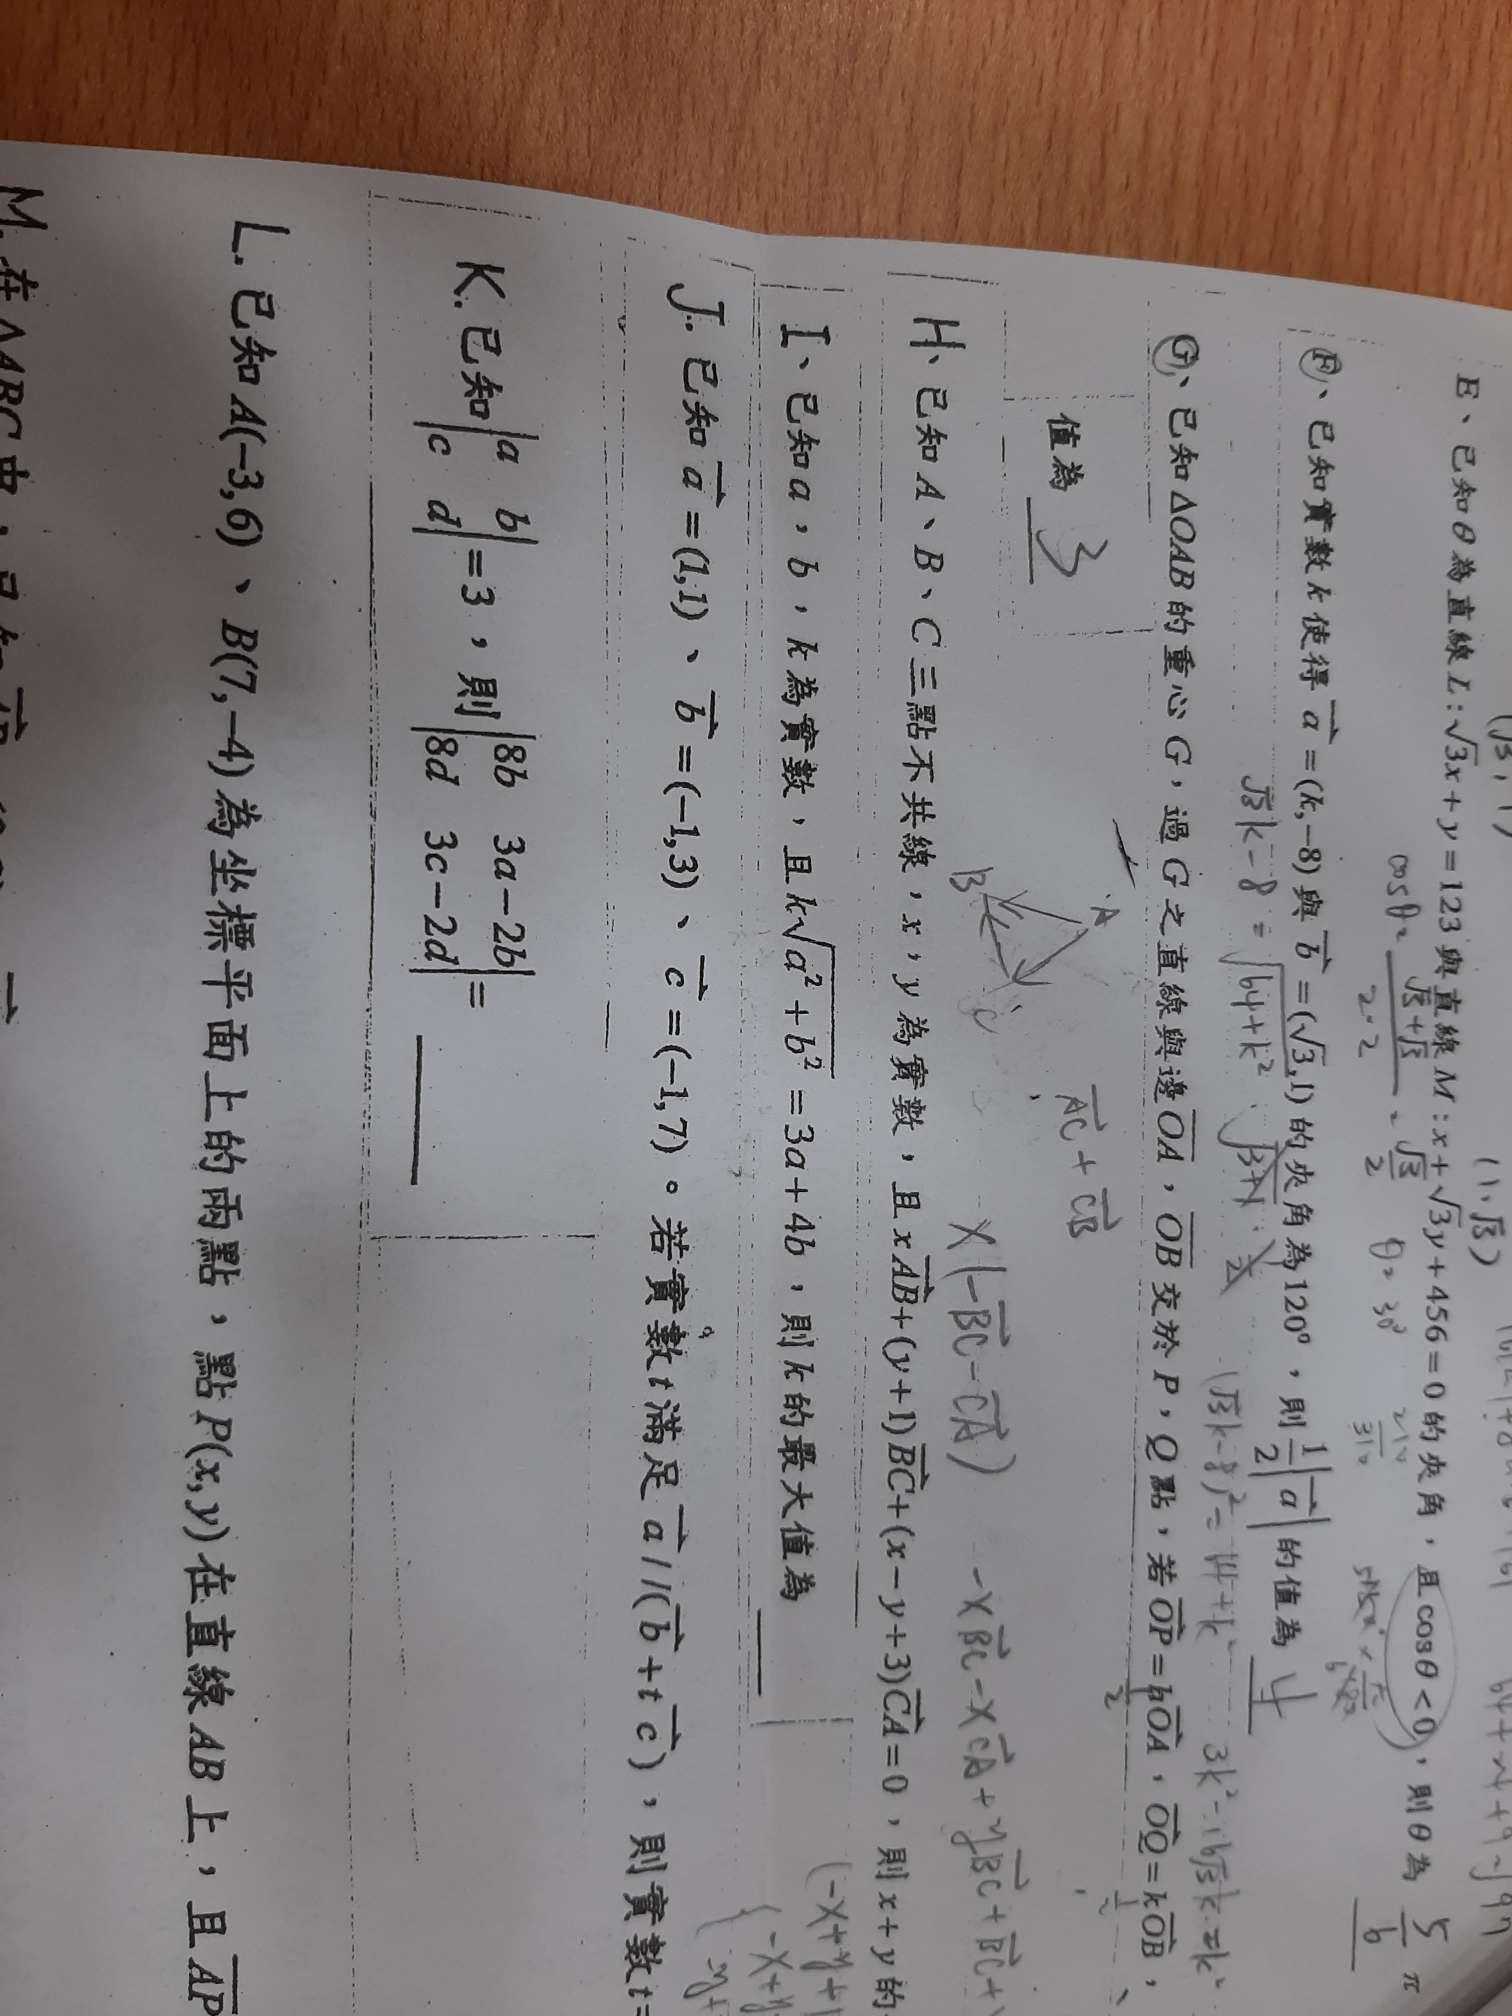 E、已知θ為直線L:√3x+y=123與直線M:x+√3y+456=0的夾角，且cosθ<0，則θ為 5/6 π
cosθ= (√3+√3)/(2·2) = √3/2 θ=30°
(1,√3)
F、已知實數k使得a⃗=(k,-8)與b⃗=(√3,1)的夾角為120°，則1/2|a⃗|的值為 4
√3k-8=√(64+k²)
G、已知ΔOAB的重心G，過G之直線與邊OA，OB交於P，Q點，若OP⃗=hOA⃗，OQ⃗=kOB⃗，
值為 3
A
B
C
AC⃗+CB⃗
H、已知A、B、C三點不共線，x，y為實數，且xAB⃗+(y+1)BC⃗+(x-y+3)CA⃗=0，則x+y的
x(-BC⃗-CA⃗) -xBC⃗-xCA⃗+yBC⃗+BC⃗+
I、已知a，b，k為實數，且k√(a²+b²)=3a+4b，則k的最大值為
J. 已知a⃗=(1,1)、b⃗=(-1,3)、c⃗=(-1,7)。若實數t滿足a⃗//(b⃗+tc⃗)，則實數t=
K. 已知|a b; c d|=3，則|8b 3a-2b; 8d 3c-2d|=
L. 已知A(-3,6)、B(7,-4)為坐標平面上的兩點，點P(x,y)在直線AB上，且AP
M. 在ΔABC中，已知